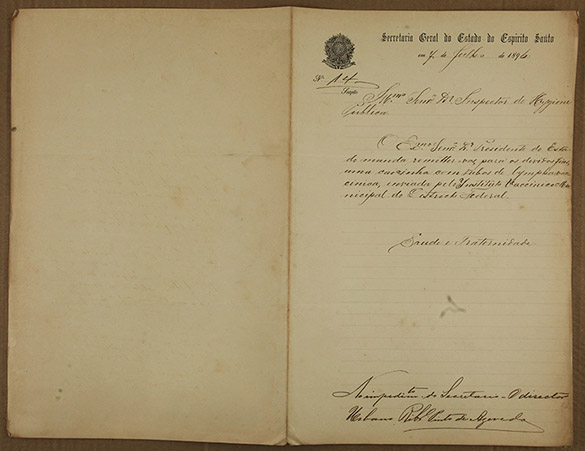 Secretaria Geral do Estado do Espirito Santo
em 7 de Julho de 1896
Nº 14
Secção
Illmo Senr Dr Inspector de Hygiene
Publica
O Exmo Senr Dr Presidente do Esta-
do manda remetter-vos, para os devidos fins,
uma caixinha com tubos de lympha vac-
cinica, enviada pelo Instituto Vaccinico Mu-
nicipal do Districto Federal.
Saude e Fraternidade
No impedimto do Secretario - O director
Urbano Ribº Pinto de Azevedo